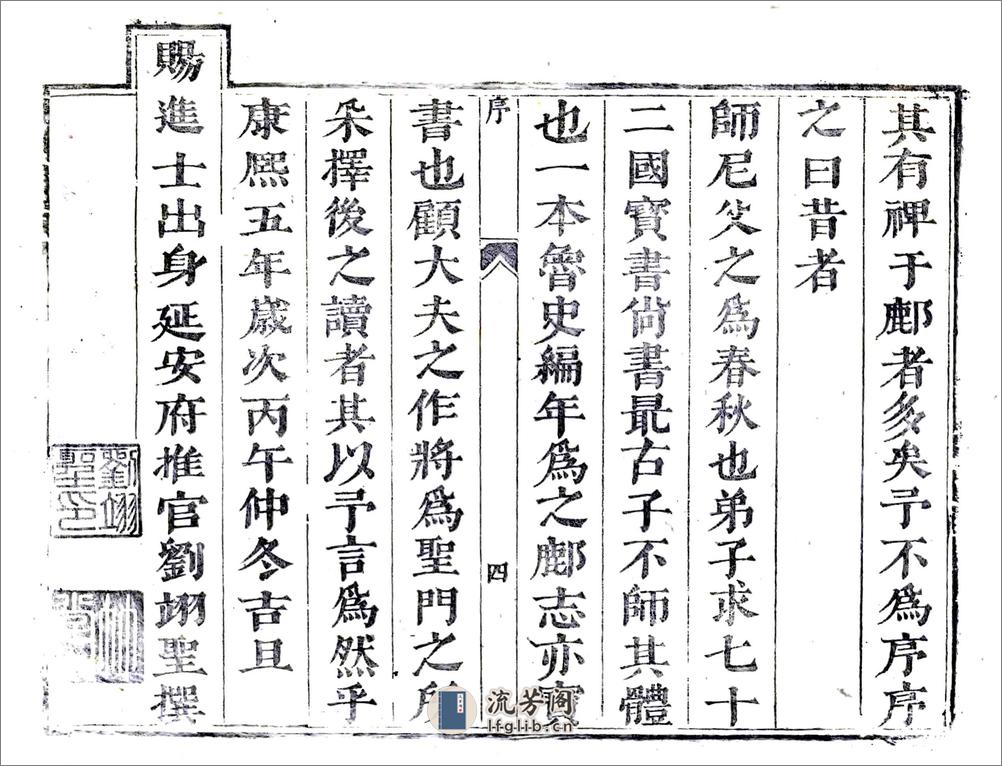 其有裨于鄜者多矣予不爲序序
之曰昔者
師尼父之爲春秋也弟子求七十
二國寳書尚書最古子不師其體
也一本魯史編年爲之鄜志亦
序
四
書也顧大夫之作將爲聖門之所
采擇後之讀者其以予言爲然乎
康熈五年歲次丙午仲冬吉旦
賜進士出身延安府推官劉翊聖撰
劉翊聖印
流芳阁
lfglib.cn